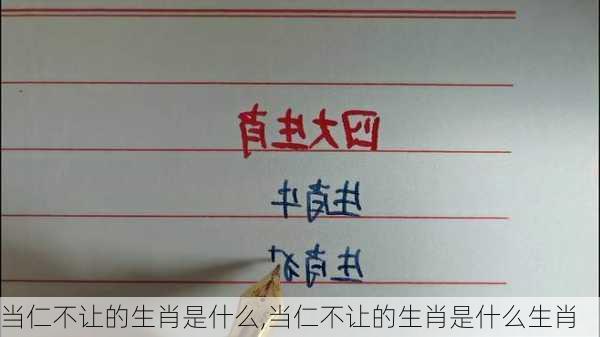 四大生肖
生肖牛
生肖
当仁不让的生肖是什么,当仁不让的生肖是什么生肖